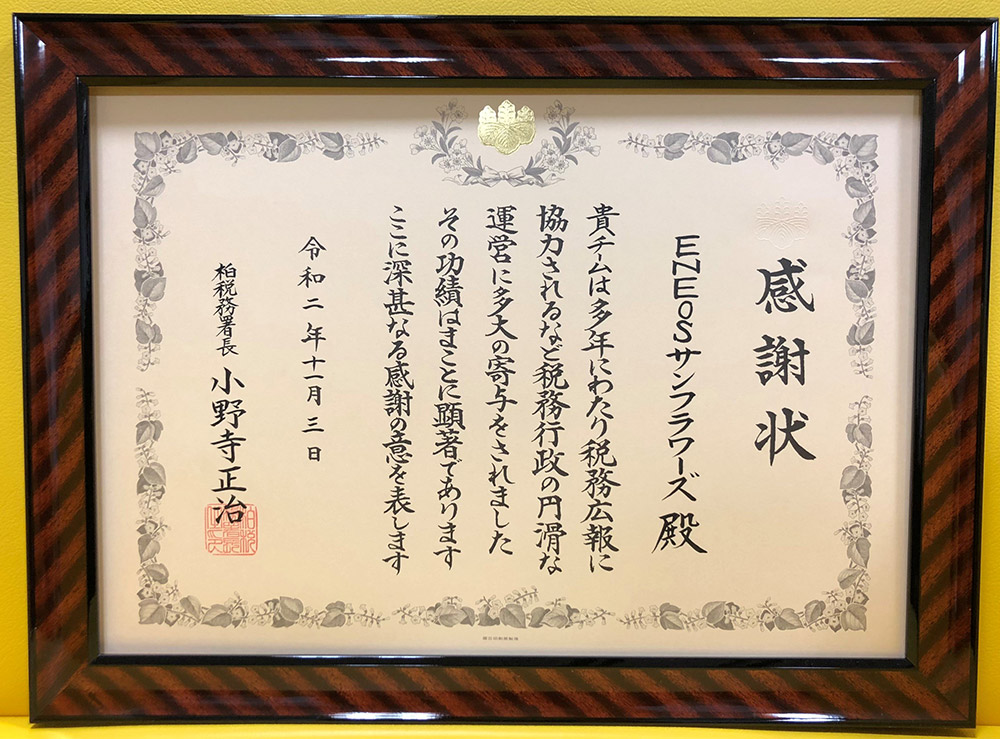 感謝状
ENEOSサンフラワーズ 殿
貴チームは多年にわたり税務広報に
協力されるなど税務行政の円滑な
運営に多大の寄与をされました
その功績はまことに顕著であります
ここに深甚なる感謝の意を表します
令和二年十一月三日
柏税務署長 小野寺正治